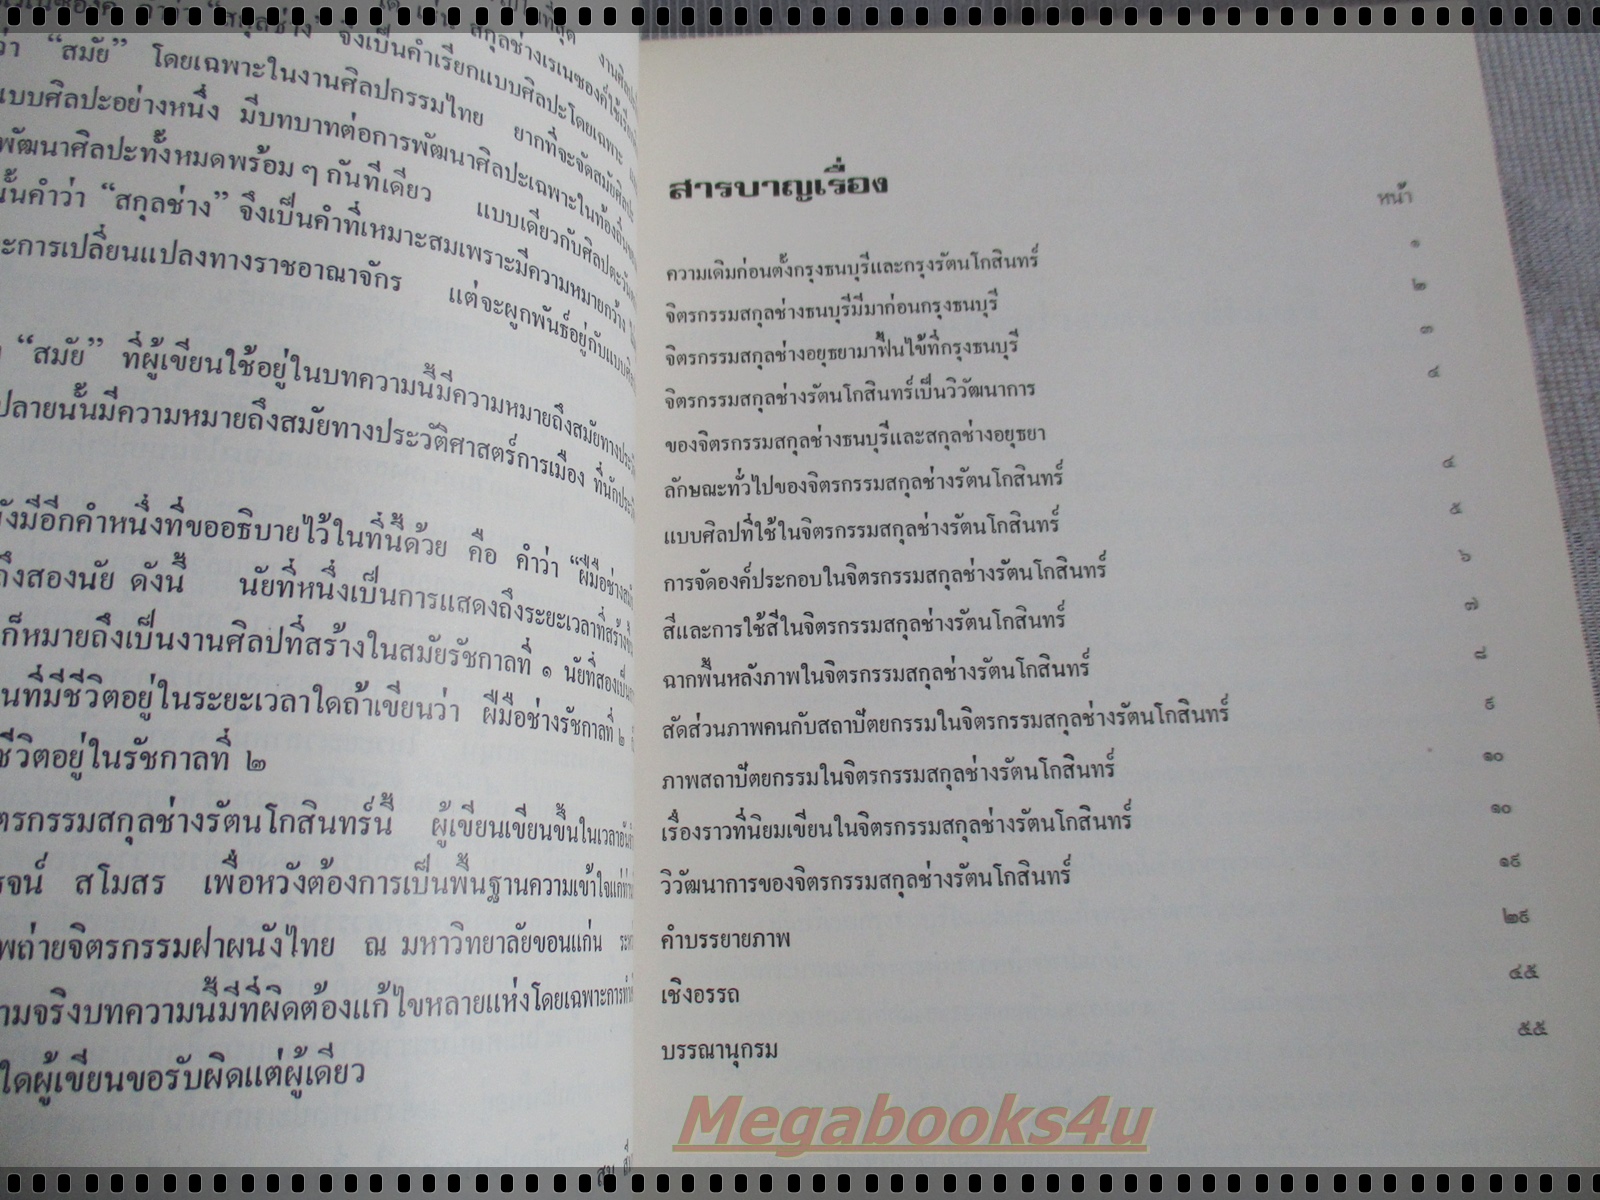 ว่า “สมัย” โดยเฉพาะในงานศิลปกรรมไทย ยากที่จะจัดสมัยศิลปะ
แบบศิลปะอย่างหนึ่ง มีบทบาทต่อการพัฒนาศิลปะเฉพาะในท้องถิ่น
พัฒนาศิลปะทั้งหมดพร้อม ๆ กันทีเดียว แบบเดียวกับศิลปตะวันตก
นั้นคำว่า “สกุลช่าง” จึงเป็นคำที่เหมาะสมเพราะมีความหมายกว้าง
ะการเปลี่ยนแปลงทางราชอาณาจักร แต่จะผูกพันธ์อยู่กับแบบศิลป
“สมัย” ที่ผู้เขียนใช้อยู่ในบทความนี้มีความหมายถึงสมัยทางประวัติ
ปลายนั้นมีความหมายถึงสมัยทางประวัติศาสตร์การเมือง ที่นักประวั
ยังมีอีกคำหนึ่งที่ขออธิบายไว้ในที่นี้ด้วย คือ คำว่า “ฝีมือช่างสมั
ถึงสองนัย ดังนี้ นัยที่หนึ่งเป็นการแสดงถึงระยะเวลาที่สร้างขึ้น
ก็หมายถึงเป็นงานศิลปที่สร้างในสมัยรัชกาลที่ ๑ นัยที่สองเป็น
นที่มีชีวิตอยู่ในระยะเวลาใดถ้าเขียนว่า ฝีมือช่างรัชกาลที่ ๒
ชีวิตอยู่ในรัชกาลที่ ๒
ตรกรรมสกุลช่างรัตนโกสินทร์นี้ ผู้เขียนเขียนขึ้นในเวลาอัน
รจน์ สโมสร เพื่อหวังต้องการเป็นพื้นฐานความเข้าใจแก่
พถ่ายจิตรกรรมฝาผนังไทย ณ มหาวิทยาลัยขอนแก่น
ามจริงบทความนี้มีที่ผิดต้องแก้ไขหลายแห่งโดยเฉพาะการ
ใดผู้เขียนขอรับผิดแต่ผู้เดียว
สารบาญเรื่อง
หน้า
ความเดิมก่อนตั้งกรุงธนบุรีและกรุงรัตนโกสินทร์ ๑
จิตรกรรมสกุลช่างธนบุรีมีมาก่อนกรุงธนบุรี ๒
จิตรกรรมสกุลช่างอยุธยามาฟื้นไข้ที่กรุงธนบุรี ๓
จิตรกรรมสกุลช่างรัตนโกสินทร์เป็นวิวัฒนาการ ๔
ของจิตรกรรมสกุลช่างธนบุรีและสกุลช่างอยุธยา
ลักษณะทั่วไปของจิตรกรรมสกุลช่างรัตนโกสินทร์ ๔
แบบศิลปที่ใช้ในจิตรกรรมสกุลช่างรัตนโกสินทร์ ๕
การจัดองค์ประกอบในจิตรกรรมสกุลช่างรัตนโกสินทร์ ๖
สีและการใช้สีในจิตรกรรมสกุลช่างรัตนโกสินทร์ ๗
ฉากพื้นหลังภาพในจิตรกรรมสกุลช่างรัตนโกสินทร์ ๘
สัดส่วนภาพคนกับสถาปัตยกรรมในจิตรกรรมสกุลช่างรัตนโกสินทร์ ๙
ภาพสถาปัตยกรรมในจิตรกรรมสกุลช่างรัตนโกสินทร์ ๑๐
เรื่องราวที่นิยมเขียนในจิตรกรรมสกุลช่างรัตนโกสินทร์ ๑๐
วิวัฒนาการของจิตรกรรมสกุลช่างรัตนโกสินทร์ ๑๙
คำบรรยายภาพ ๒๙
เชิงอรรถ ๔๕
บรรณานุกรม ๕๕
Megabooks4u